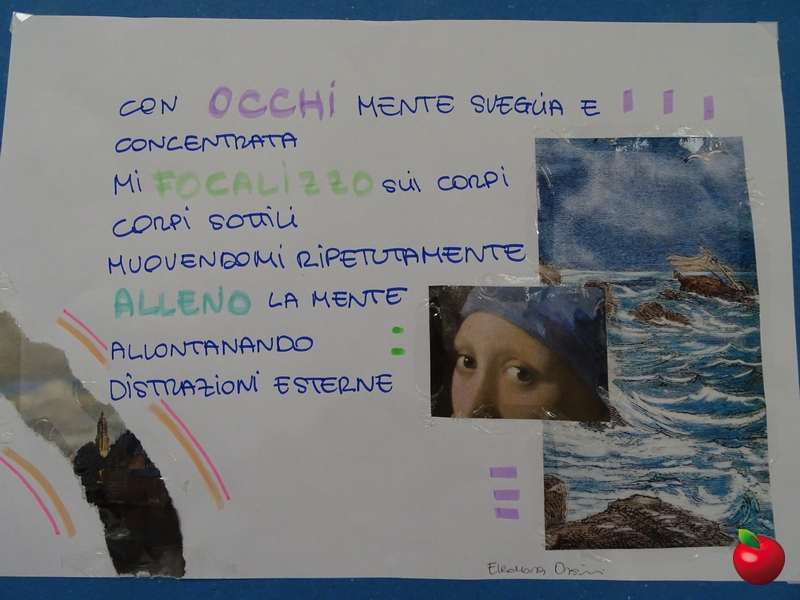 CON OCCHI MENTE SVEGLIA E
CONCENTRATA
MI FOCALIZZO SUI CORPI
CORPI SOTTILI
MUOVENDOMI RIPETUTAMENTE
ALLENO LA MENTE
ALLONTANANDO
DISTRAZIONI ESTERNE
Eleonora